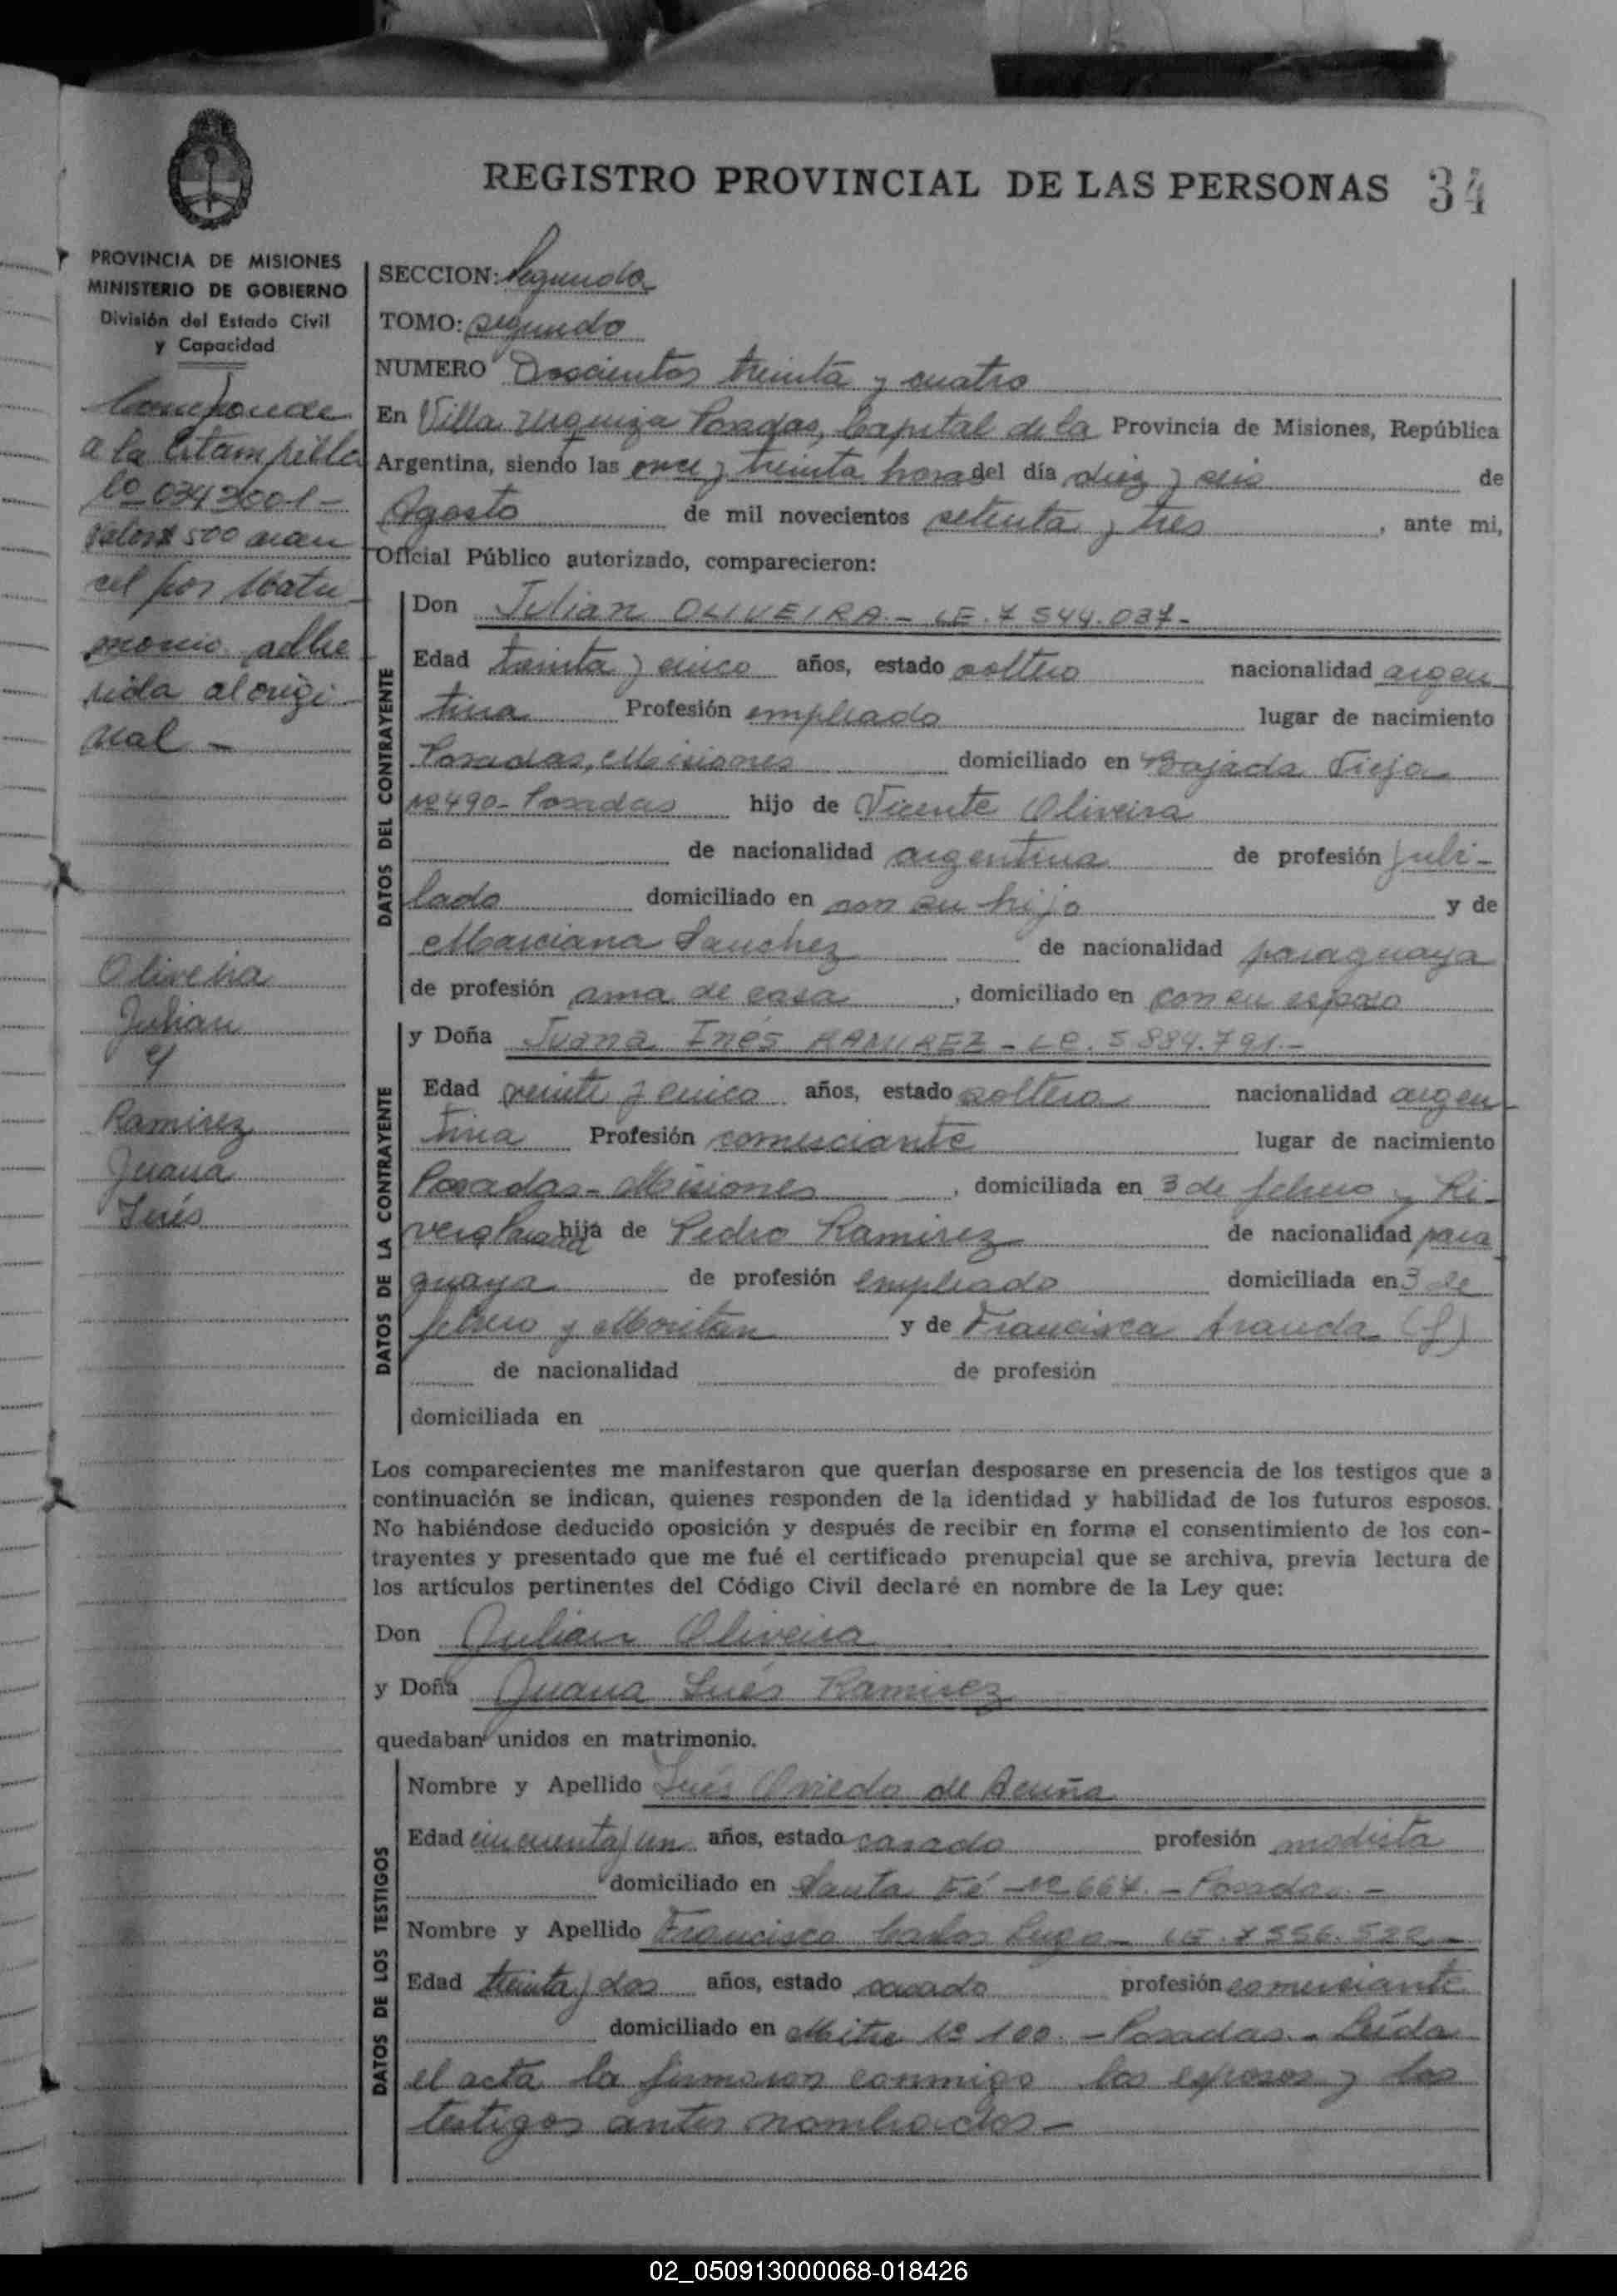 REGISTRO PROVINCIAL DE LAS PERSONAS 34
PROVINCIA DE MISIONES
MINISTERIO DE GOBIERNO
División del Estado Civil
y Capacidad
Corresponde
a la Estampilla
034
valor $ 500 aran
cel por Matri
monio adhe
rida al origi
nal -
Oliveira
Julian
y
Ramirez
Juana
Inés
SECCION: Segunda
TOMO: segundo
NUMERO Doscientos treinta y cuatro
En Villa Urquiza Posadas, Capital de la Provincia de Misiones, República
Argentina, siendo las once y treinta horas del día diez y seis de
Agosto de mil novecientos setenta y tres, ante mi,
Oficial Público autorizado, comparecieron:
DATOS DEL CONTRAYENTE
Don Julian OLIVEIRA.- LE. 7.544.037-
Edad treinta y cinco años, estado soltero nacionalidad argen
tina Profesión empleado lugar de nacimiento
Posadas, Misiones domiciliado en Bajada Vieja
Nº 490- Posadas hijo de Vicente Oliveira
de nacionalidad argentina de profesión jubi-
lado domiciliado en con su hijo y de
Marciana Sanchez de nacionalidad paraguaya
de profesión ama de casa, domiciliado en con su esposo
DATOS DE LA CONTRAYENTE
y Doña Juana Inés RAMIREZ - LC. 5.884.791.-
Edad veinte y cinco años, estado soltera nacionalidad argen
tina Profesión comerciante lugar de nacimiento
Posadas - Misiones, domiciliada en 3 de febrero y Ri-
vera hija de Pedro Ramirez de nacionalidad para
guaya de profesión empleado domiciliada en 3 de
febrero y Moritan y de Francisca Aranda (f)
de nacionalidad de profesión
domiciliada en
Los comparecientes me manifestaron que querían desposarse en presencia de los testigos que a
continuación se indican, quienes responden de la identidad y habilidad de los futuros esposos.
No habiéndose deducido oposición y después de recibir en forma el consentimiento de los con-
trayentes y presentado que me fué el certificado prenupcial que se archiva, previa lectura de
los artículos pertinentes del Código Civil declaré en nombre de la Ley que:
Don Julian Oliveira
y Doña Juana Inés Ramirez
quedaban unidos en matrimonio.
DATOS DE LOS TESTIGOS
Nombre y Apellido Inés Oviedo de Acuña
Edad cincuenta y un años, estado casado profesión modista
domiciliado en Santa Fé Nº 664. - Posadas. -
Nombre y Apellido Francisco Carlos Lugo - LE. 7.556.522 -
Edad treinta y dos años, estado casado profesión comerciante
domiciliado en Mitre Nº 100. - Posadas. - Leída
el acta la firmaron conmigo los esposos y los
testigos antes nombrados -
02_050913000068-018426